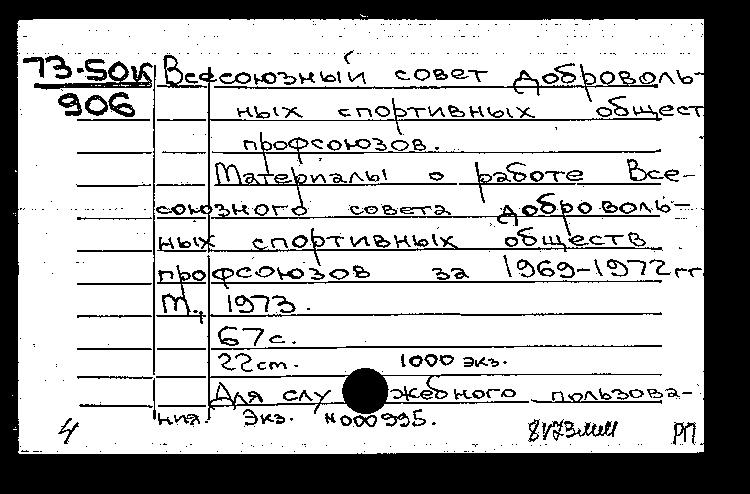 73-50к Всесоюзный совет доброволь-
906 ных спортивных общест
профсоюзов.
Материалы о работе Все-
союзного совета доброволь-
ных спортивных обществ
профсоюзов за 1969-1972гг.
М., 1973.
67с.
22см. 1000 экз.
Для служебного пользова-
ния. Экз. №000995.
4 РП